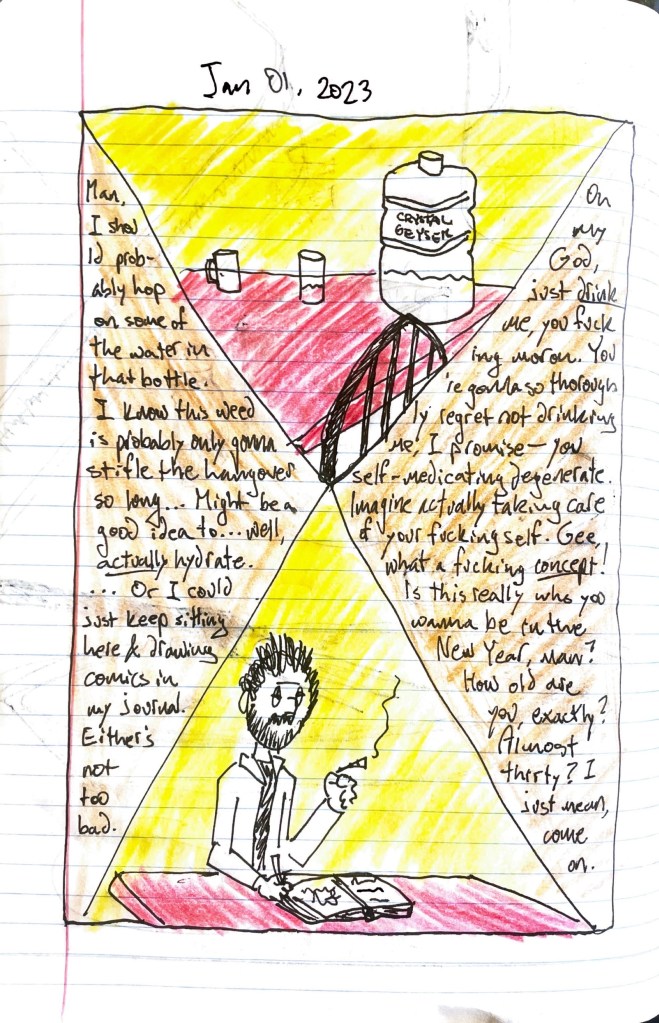 Jan 01, 2023
CRYSTAL
GEYSER
Man,
I shou
ld prob-
ably hop
on some of
the water in
that bottle.
I know this weed
is probably only gonna
stifle the hangover
so long... Might be a
good idea to... well,
actually hydrate.
... Or I could
just keep sitting
here & drawing
comics in
my journal.
Either's
not
too
bad.
Oh
my
God,
just drink
me, you fuck
ing moron. You
're gonna so thorough
ly regret not drinking
me, I promise — you
self-medicating degenerate.
Imagine actually taking care
of your fucking self. Gee,
what a fucking concept!
Is this really who you
wanna be in the
New Year, man?
How old are
you, exactly?
Almost
thirty? I
just mean,
come
on.